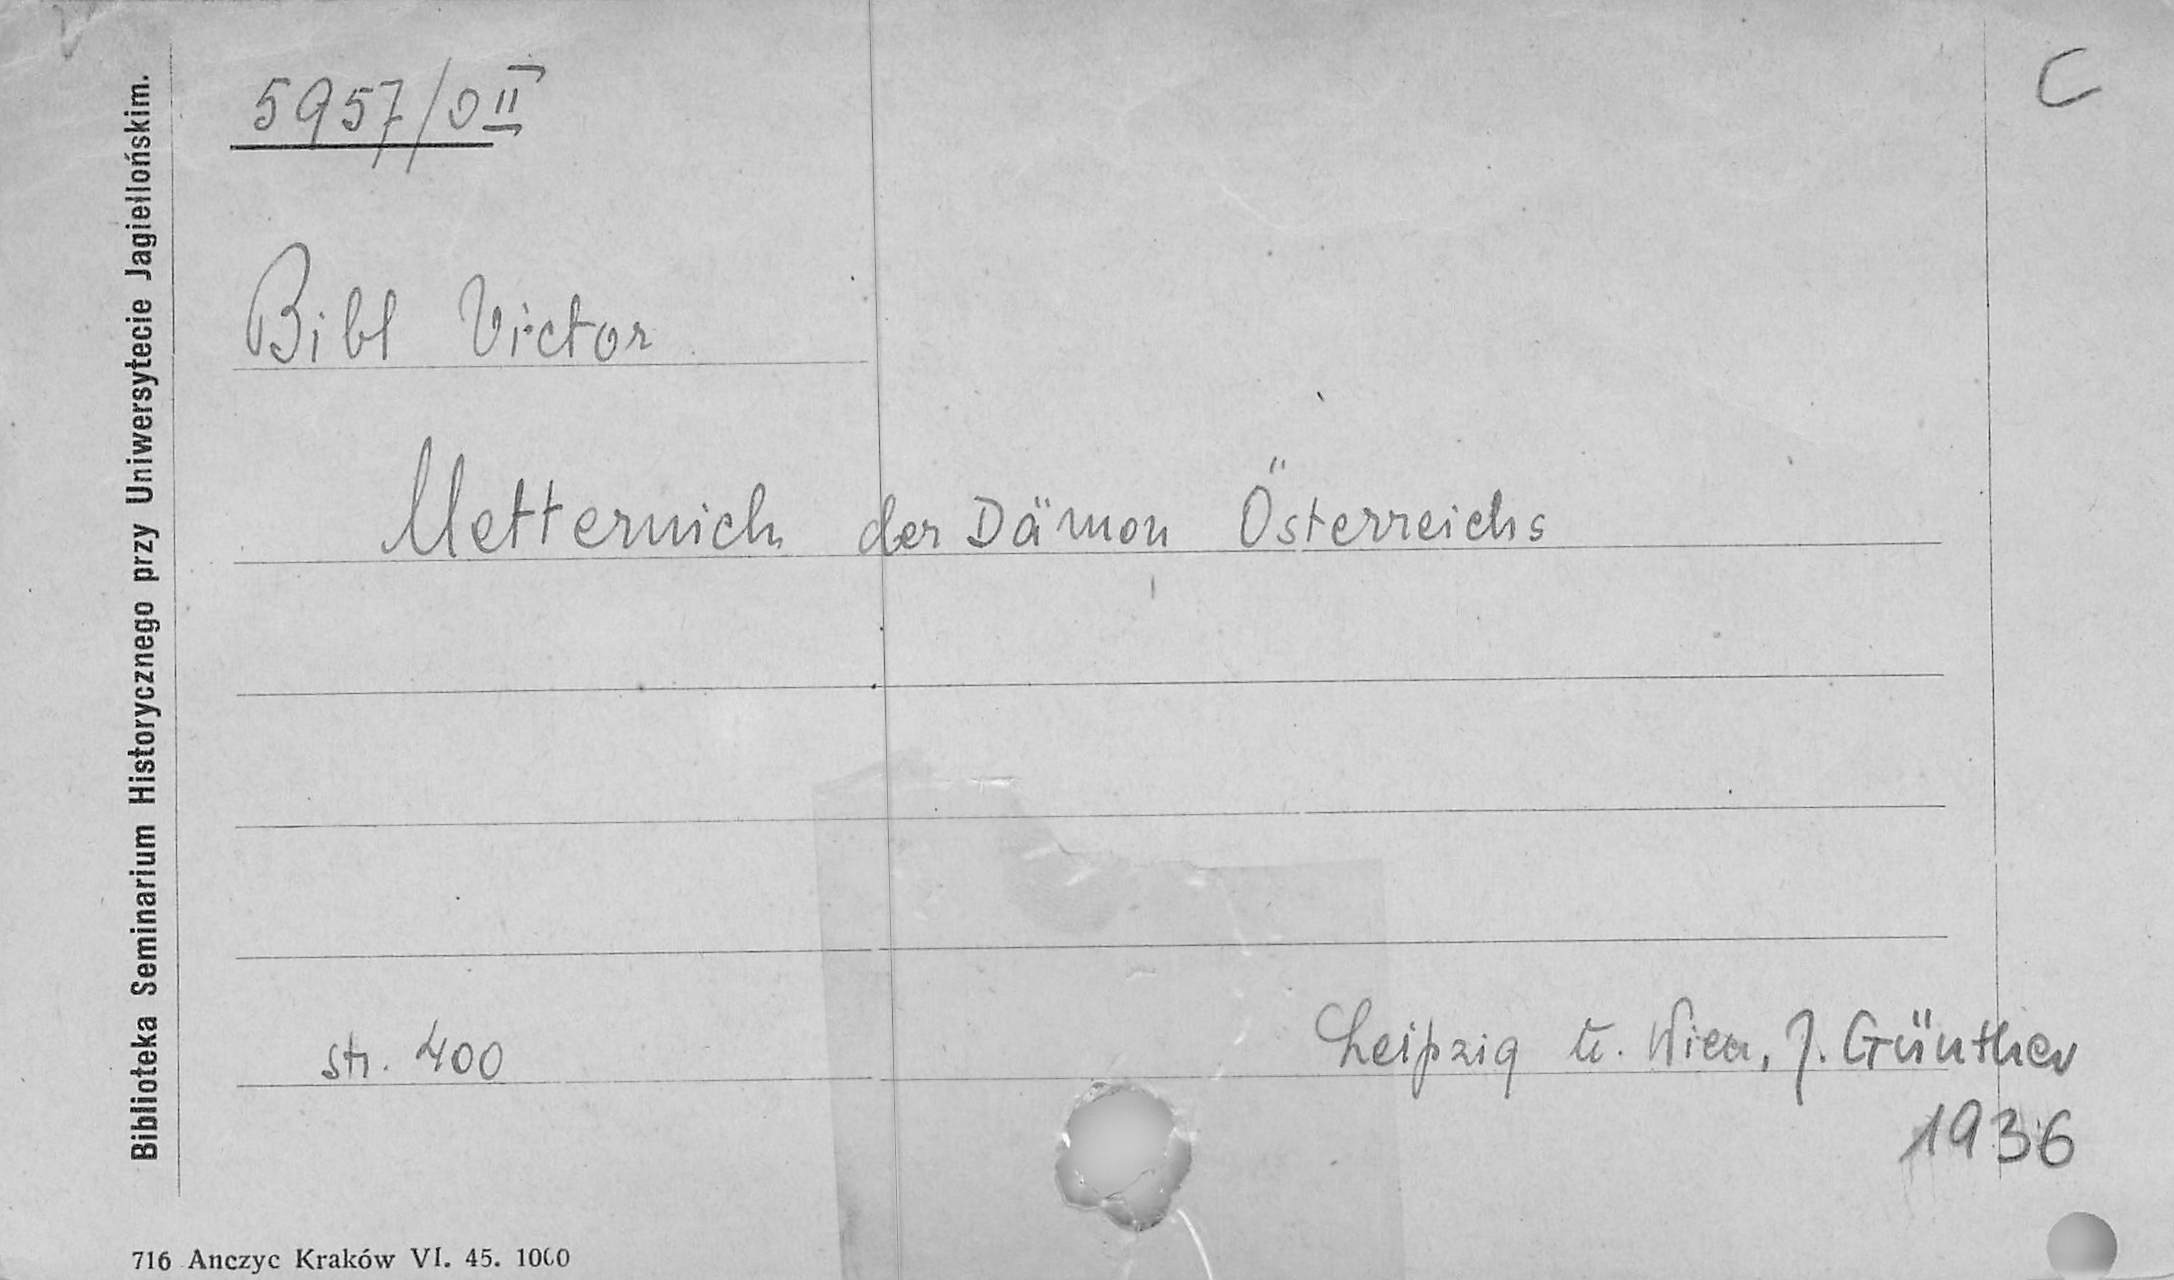 Biblioteka Seminarium Historycznego przy Uniwersytecie Jagiellońskim.
5957/O II
C
Bibl Victor
Metternich der Dämon Österreichs
str. 400
Leipzig u. Wien, J. Günther
1936
716 Anczyc Kraków VI. 45. 1000